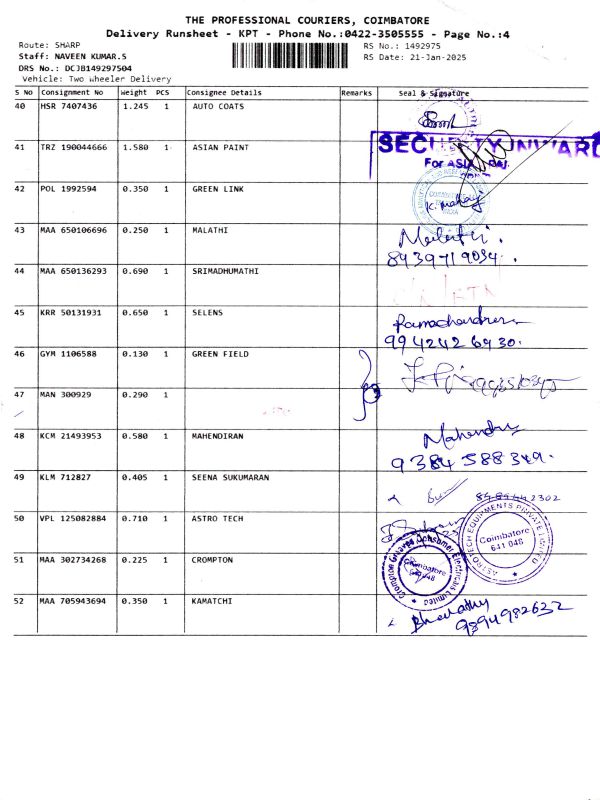 THE PROFESSIONAL COURIERS, COIMBATORE
Delivery Runsheet - KPT - Phone No.:0422-3505555 - Page No.:4
Route: SHARP RS No.: 1492975
Staff: NAVEEN KUMAR.S RS Date: 21-Jan-2025
DRS No.: DCJB149297504
Vehicle: Two Wheeler Delivery
S No Consignment No Weight PCS Consignee Details Remarks Seal & Signature
40 HSR 7407436 1.245 1 AUTO COATS
41 TRZ 190044666 1.580 1 ASIAN PAINT
SECURITY INWARD
For ASIA
42 POL 1992594 0.350 1 GREEN LINK
43 MAA 650106696 0.250 1 MALATHI
Malathi.
8939719034.
44 MAA 650136293 0.690 1 SRIMADHUMATHI
45 KRR 50131931 0.650 1 SELENS
Ramachandran
9942426930.
46 GYM 1106588 0.130 1 GREEN FIELD
47 MAN 300929 0.290 1
48 KCM 21493953 0.580 1 MAHENDIRAN
Mahendran
9384588349.
49 KLM 712827 0.405 1 SEENA SUKUMARAN
50 VPL 125082884 0.710 1 ASTRO TECH
ASTROTECH EQUIPMENTS PRIVATE LIMITED
Coimbatore
641 048
51 MAA 302734268 0.225 1 CROMPTON
Crompton Greaves Consumer Electricals Limited
Coimbatore
52 MAA 705943694 0.350 1 KAMATCHI
Bharathy
9894982632